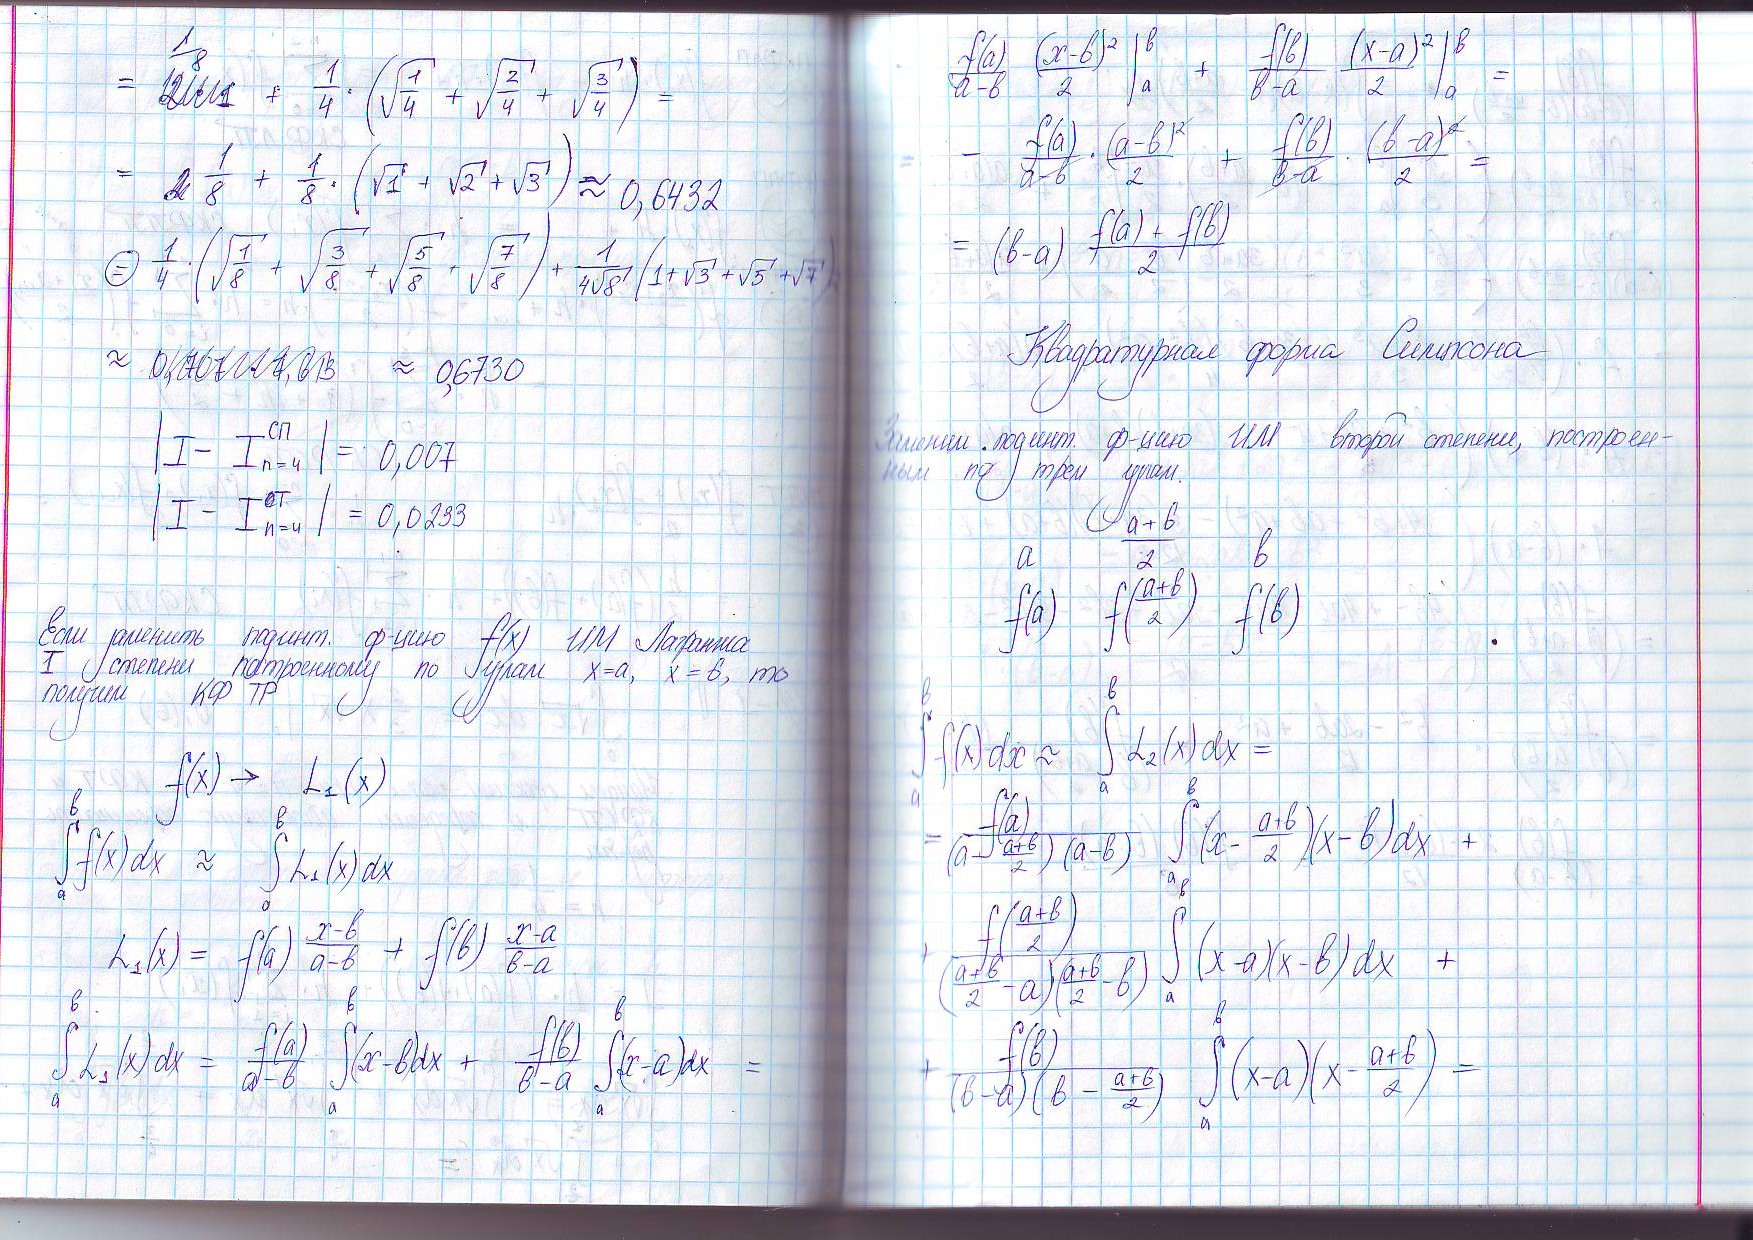 = 1/8 + 1/4 · (√(1/4) + √(2/4) + √(3/4)) =
= 1/8 + 1/8 · (√1 + √2 + √3) ≈ 0,6432
⊜ 1/4 · (√(1/8) + √(3/8) + √(5/8) + √(7/8)) + 1/(4√8) (1+√3+√5+√7)
≈ 0,6730
|I - I^СП_(n=4)| = 0,007
|I - I^СТ_(n=4)| = 0,0233
Если заменить подинт. ф-цию f(x) ИМ Лагранжа
I степени построенному по узлам x=a, x=в, то
получим КФ ТР
f(x) → L₁(x)
∫_a^в f(x)dx ≈ ∫_a^в L₁(x)dx
L₁(x) = f(a) (x-в)/(a-в) + f(в) (x-a)/(в-a)
∫_a^в L₁(x)dx = f(a)/(a-в) ∫_a^в (x-в)dx + f(в)/(в-a) ∫_a^в (x-a)dx =
f(a)/(a-в) (x-в)²/2 |_a^в + f(в)/(в-a) (x-a)²/2 |_a^в =
= - f(a)/(a-в) · (a-в)²/2 + f(в)/(в-a) · (в-a)²/2 =
= (в-a) (f(a) + f(в))/2
Квадратурная форма Симпсона
Заменим подинт. ф-цию ИМ второй степени, построен-
ным по трем узлам.
a (a+в)/2 в
f(a) f((a+в)/2) f(в)
∫_a^в f(x)dx ≈ ∫_a^в L₂(x)dx =
= f(a)/((a - (a+в)/2)(a-в)) ∫_a^в (x - (a+в)/2)(x-в)dx +
+ f((a+в)/2)/(((a+в)/2 - a)((a+в)/2 - в)) ∫_a^в (x-a)(x-в)dx +
+ f(в)/((в-a)(в - (a+в)/2)) ∫_a^в (x-a)(x - (a+в)/2) =